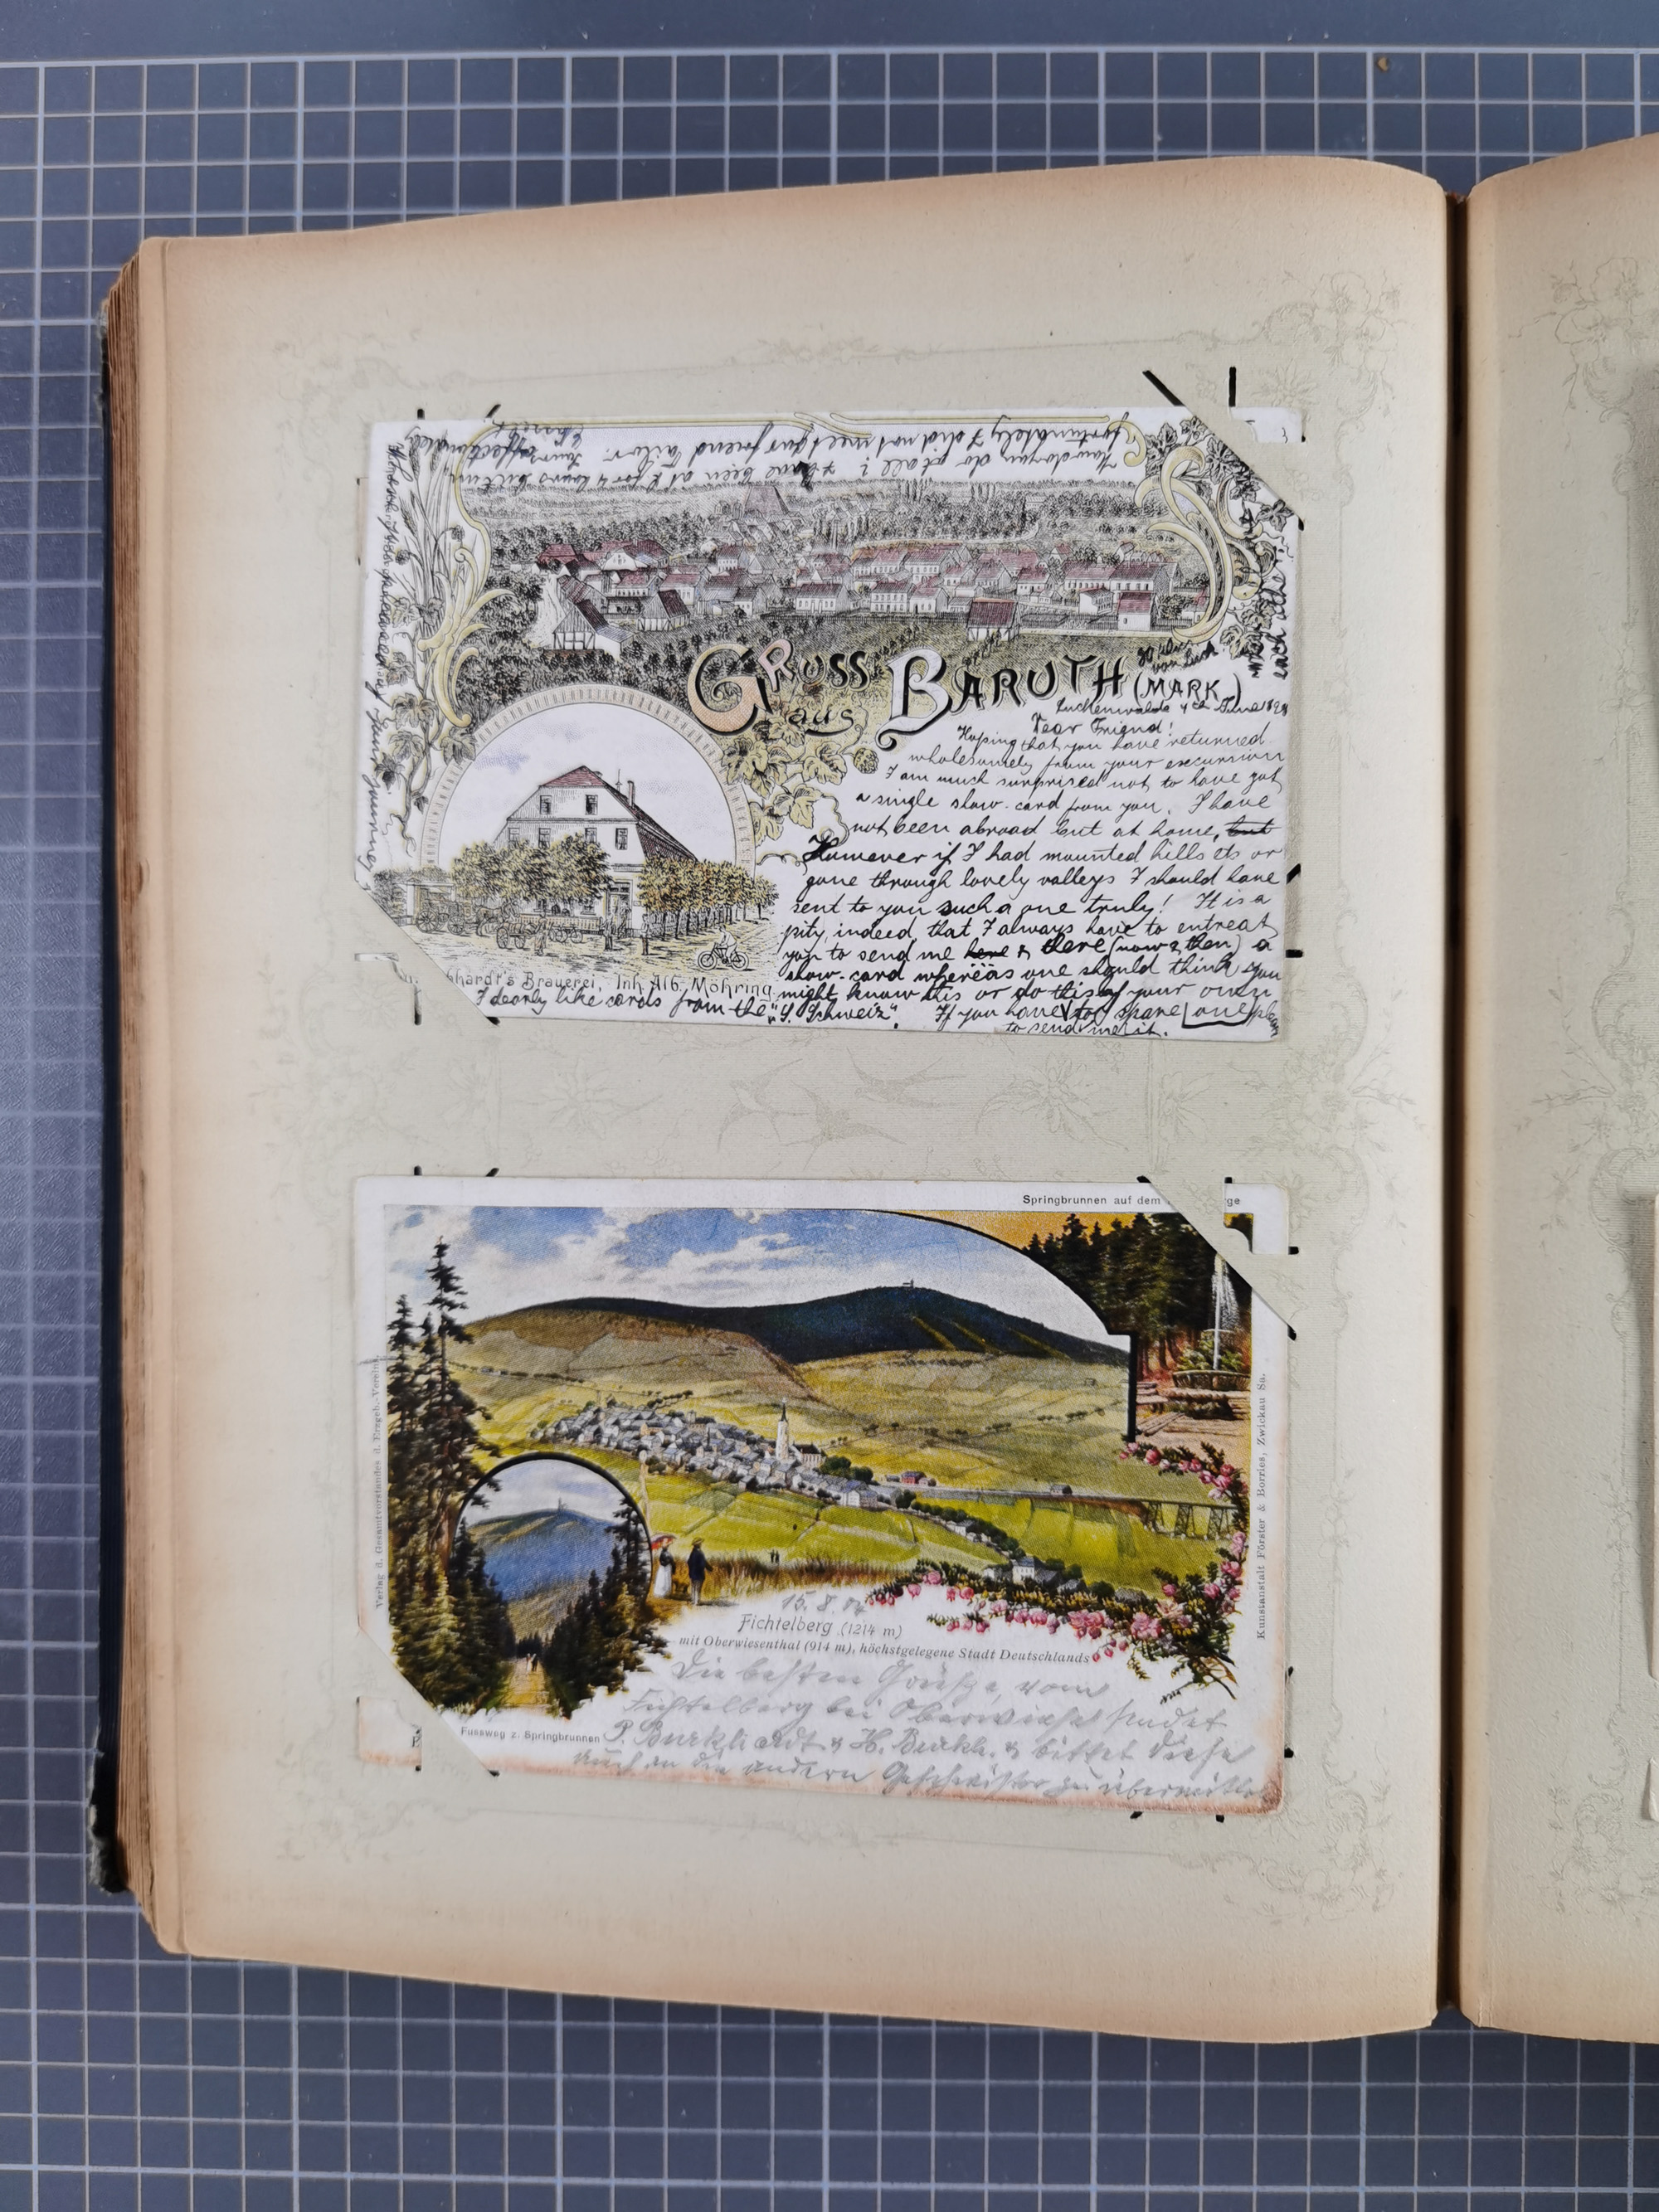 How do you do at all? I have been at L. for 4 hours but un-
fortunately I did not meet our friend
Yours affectionately
GRUSS
aus
BARUTH
(MARK)
Luckenwalde 4th June
Dear Friend!
Hoping that you have returned
wholesomely from your excursion
I am much surprised not to have got
a single show-card from you. I have
not been abroad but at home, but
However if I had mounted hills etc or
gone through lovely valleys I should have
sent to you such a one truly! It is a
pity, indeed, that I always have to entreat
you to send me here & there (now & then) a
show-card whereäs one should think you
might know this or do this of your own
hardt's Brauerei, Inh. Alb. Möhring
I dearly like cards from the "S. Schweiz". If you have to spare one
to send me it.
Springbrunnen auf dem
ge
Verlag d. Gesamtvorstandes d. Erzgeb.-Vereins
Kunstanstalt Förster & Borries, Zwickau Sa.
15. 8. 04
Fichtelberg (1214 m)
mit Oberwiesenthal (914 m), höchstgelegene Stadt Deutschlands
Die besten Grüße, vom
Fichtelberg bei Oberwiesethal sendet
Fussweg z. Springbrunnen
P. Burkhardt & H. Burkh. & bittet diese
auch an die andern Geschwister zu übermitteln